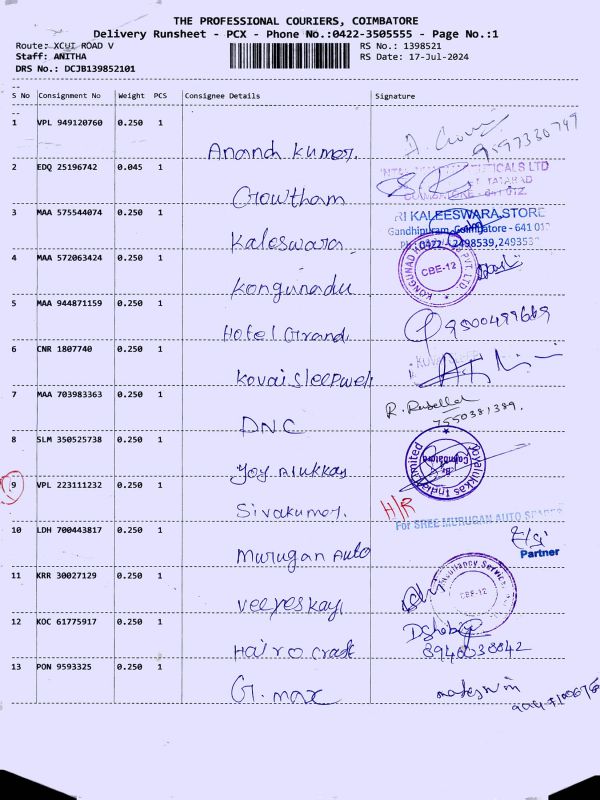 THE PROFESSIONAL COURIERS, COIMBATORE
Delivery Runsheet - PCX - Phone No.:0422-3505555 - Page No.:1
Route: XCUI ROAD V RS No.: 1398521
Staff: ANITHA RS Date: 17-Jul-2024
DRS No.: DCJB139852101
S No Consignment No Weight PCS Consignee Details Signature
1 VPL 949120760 0.250 1 Anand kumar.
2 EDQ 25196742 0.045 1 Growtham
3 MAA 575544074 0.250 1 Kaleswara
RI KALEESWARA STORE
Gandhipuram, Coimbatore - 641 012
Ph: 0422 - 2498539, 249353
4 MAA 572063424 0.250 1 Kongunadu
CBE-12
5 MAA 944871159 0.250 1 Hotel Grand 9500499669
6 CNR 1807740 0.250 1 Kovai Sleepwell
7 MAA 703983363 0.250 1 DNC R. 7550381389.
8 SLM 350525738 0.250 1 Joy Alukkas
Joyalukkas India Limited
Coimbatore
9 VPL 223111232 0.250 1 Sivakumar. H/R
For SREE MURUGAN AUTO SPARES
10 LDH 700443817 0.250 1 Murugan Auto
Partner
11 KRR 30027129 0.250 1 Veeyeskay
CBE-12
12 KOC 61775917 0.250 1 Hairo craft 8940038842
13 PON 9593325 0.250 1 G. max